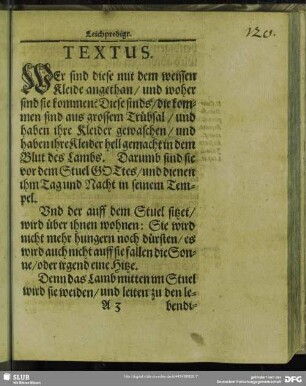 Leichpredigt.
120.
TEXTUS.
WEr sind diese mit dem weissen
Kleide angethan / und woher
sind sie kommen? Diese sinds / die kom-
men sind aus grossem Trübsal / und
haben ihre Kleider gewaschen / und
haben ihre Kleider hell gemacht in dem
Blut des Lambs. Darumb sind sie
vor dem Stuel GOttes / und dienen
ihm Tag und Nacht in seinem Tem-
pel.
Vnd der auff dem Stuel sitzet /
wird über ihnen wohnen: Sie wird
nicht mehr hungern noch dürsten / es
wird auch nicht auff sie fallen die Son-
ne / oder irgend eine Hitze.
Denn das Lamb mitten im Stuel
wird sie weiden / und leiten zu den le-
A 3 bendi-
SLUB
Wir führen Wissen.
gefördert von der
Deutschen Forschungsgemeinschaft
DFG